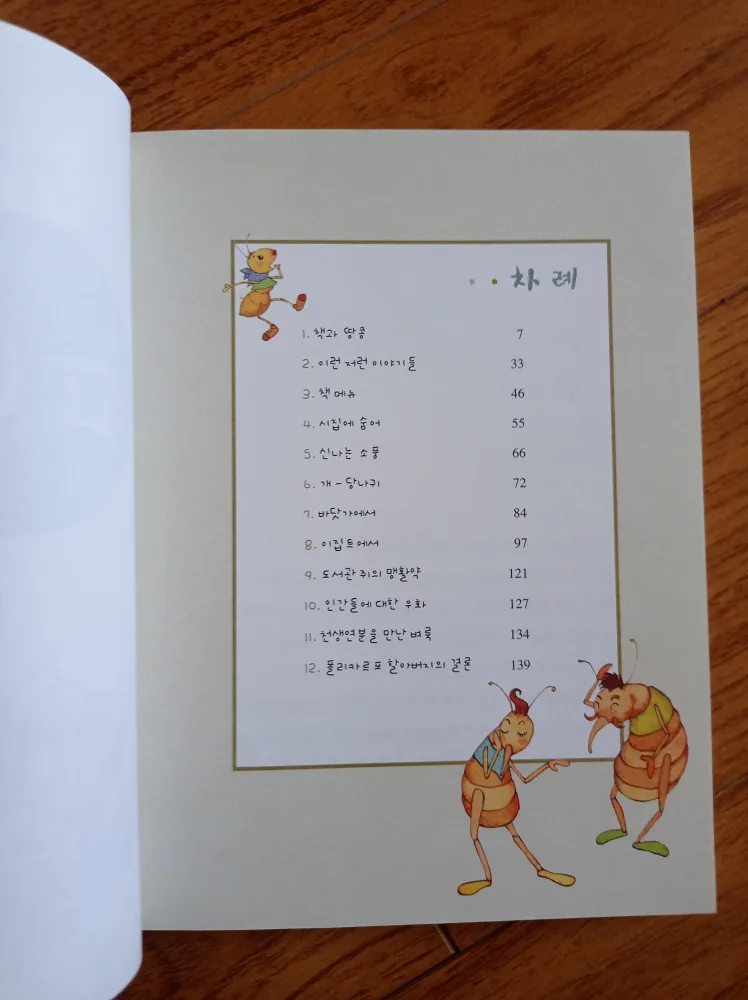 차례
1. 책과 땅콩 7
2. 이런 저런 이야기들 33
3. 책 메뉴 46
4. 시집에 숨어 55
5. 신나는 소풍 66
6. 개 - 당나귀 72
7. 바닷가에서 84
8. 이집트에서 97
9. 도서관 쥐의 맹활약 121
10. 인간들에 대한 우화 127
11. 천생연분을 만난 벼룩 134
12. 폴리카르포 할아버지의 결론 139